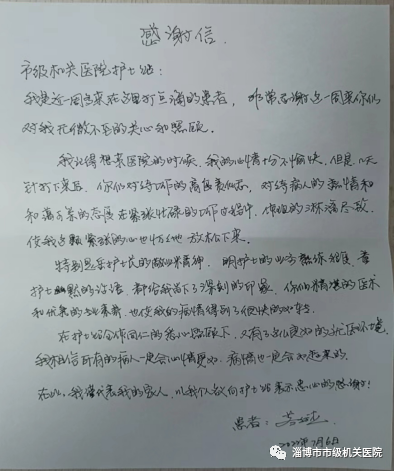 感谢信
市级机关医院护士站:
我是近一周来在这里打点滴的患者,非常感谢这一周来你们
对我无微不至的关心和照顾。
我记得想来医院的时候,我的心情十分不愉快,但是几天
针打下来后,你们对待工作的高度责任感,对待病人的热情和
和蔼可亲的态度在紧张忙碌的工作过程中,体现的淋漓尽致,
使我这颗紧张的心也慢慢地放松下来。
特别是岳护士长的敬业精神,明护士的业务熟练程度,
护士幽默的谈话,都给我留下了深刻的印象,你们精湛的医术
和优秀的专业素养,也使我的病情得到了很快的好转。
在护士站全体同仁的悉心照顾下,又有了这么良好的就医环境,
我相信所有的病人一定会心情更好,病情也一定会好起来的。
在此,我谨代表我的家人,以我个人敬向护士站表示忠心的感谢!
患者:
2022年7月6日
淄博市市级机关医院